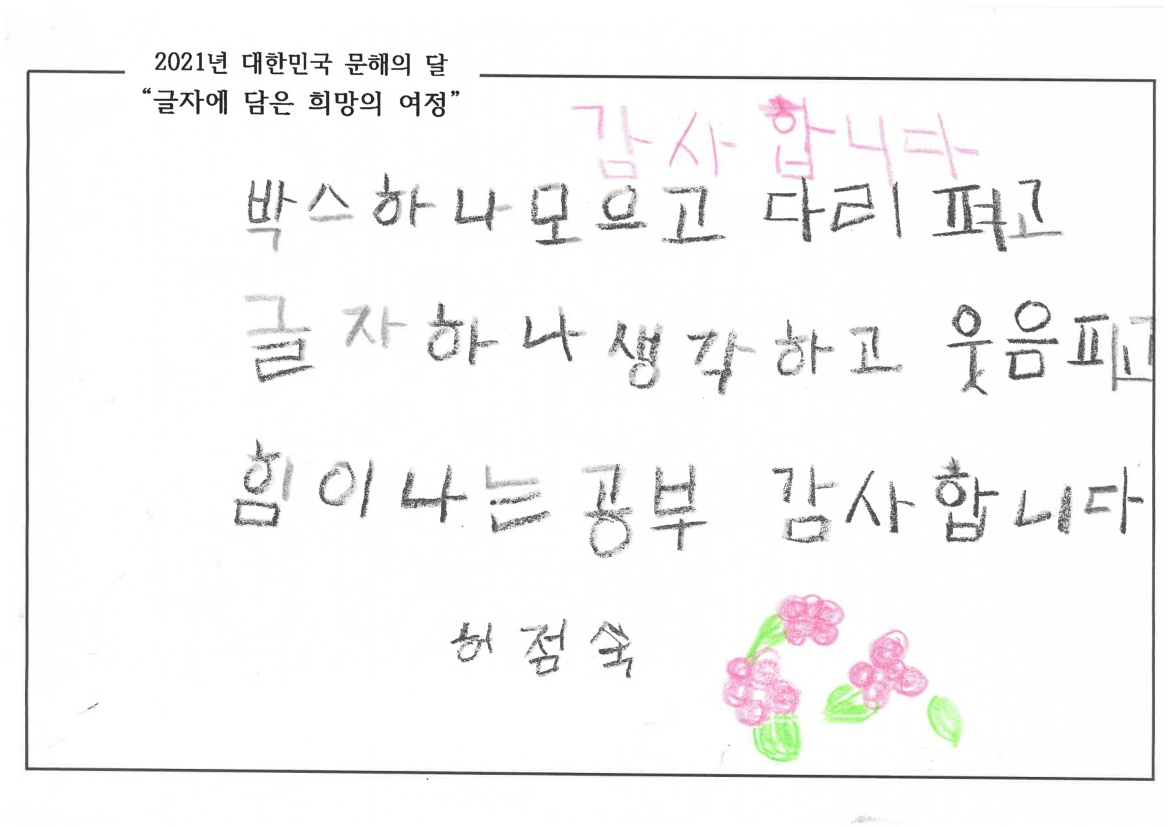 2021년 대한민국 문해의 달
“글자에 담은 희망의 여정”
감사합니다
박스하나모으고 다리 펴고
글자하나생각하고 웃음피고
힘이나는공부 감사합니다
허점숙